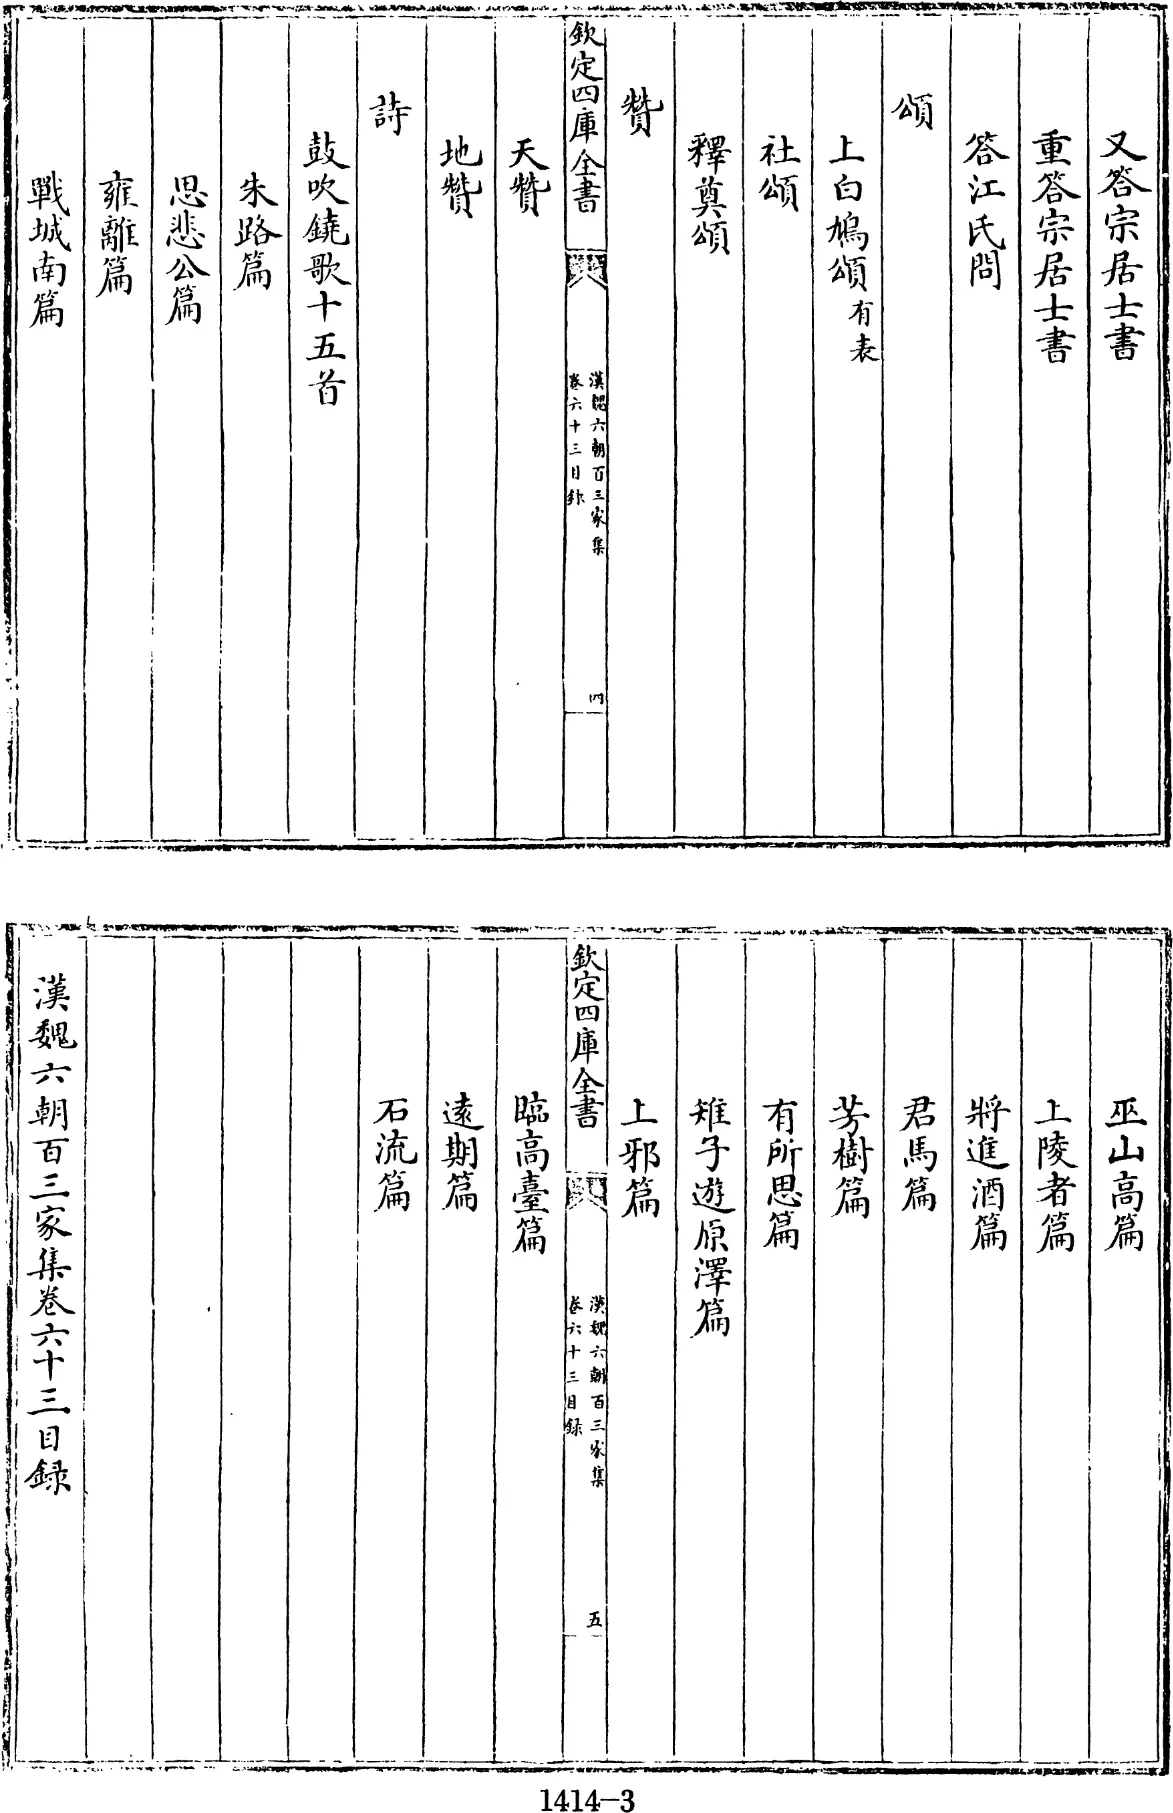 又答宗居士書
重答宗居士書
答江氏問
頌
上白鳩頌有表
社頌
釋奠頌
贊
欽定四庫全書
漢魏六朝百三家集
卷六十三目録
四
天贊
地贊
詩
鼓吹鐃歌十五首
朱路篇
思悲公篇
雍離篇
戰城南篇
巫山高篇
上陵者篇
將進酒篇
君馬篇
芳樹篇
有所思篇
雉子遊原澤篇
上邪篇
欽定四庫全書
漢魏六朝百三家集
卷六十三目録
五
臨高臺篇
遠期篇
石流篇
漢魏六朝百三家集卷六十三目録
1414-3